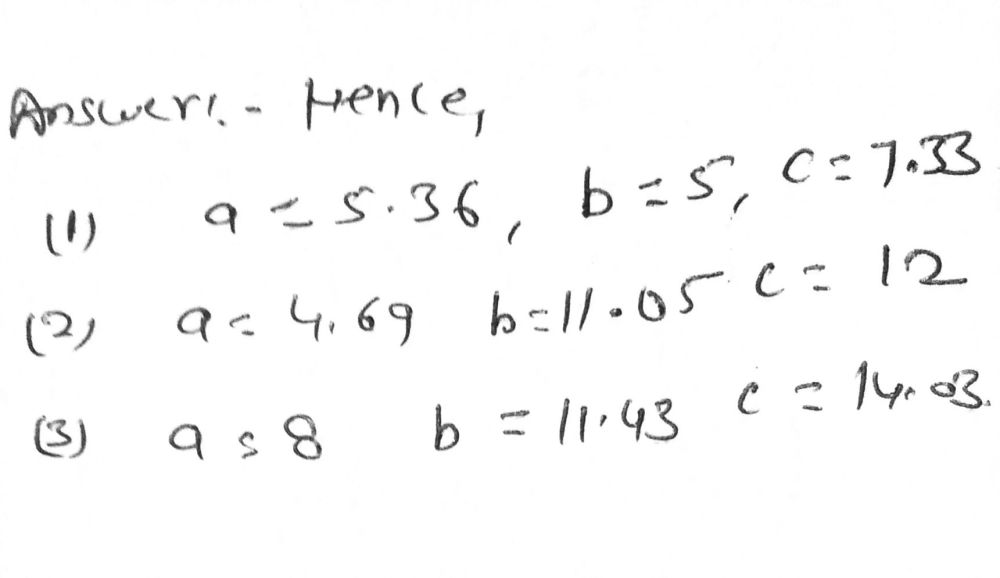 Answer:- Hence,
(1) a = 5.36, b = 5, c = 7.33
(2) a = 4.69 b = 11.05 c = 12
(3) a = 8 b = 11.43 c = 14.03.